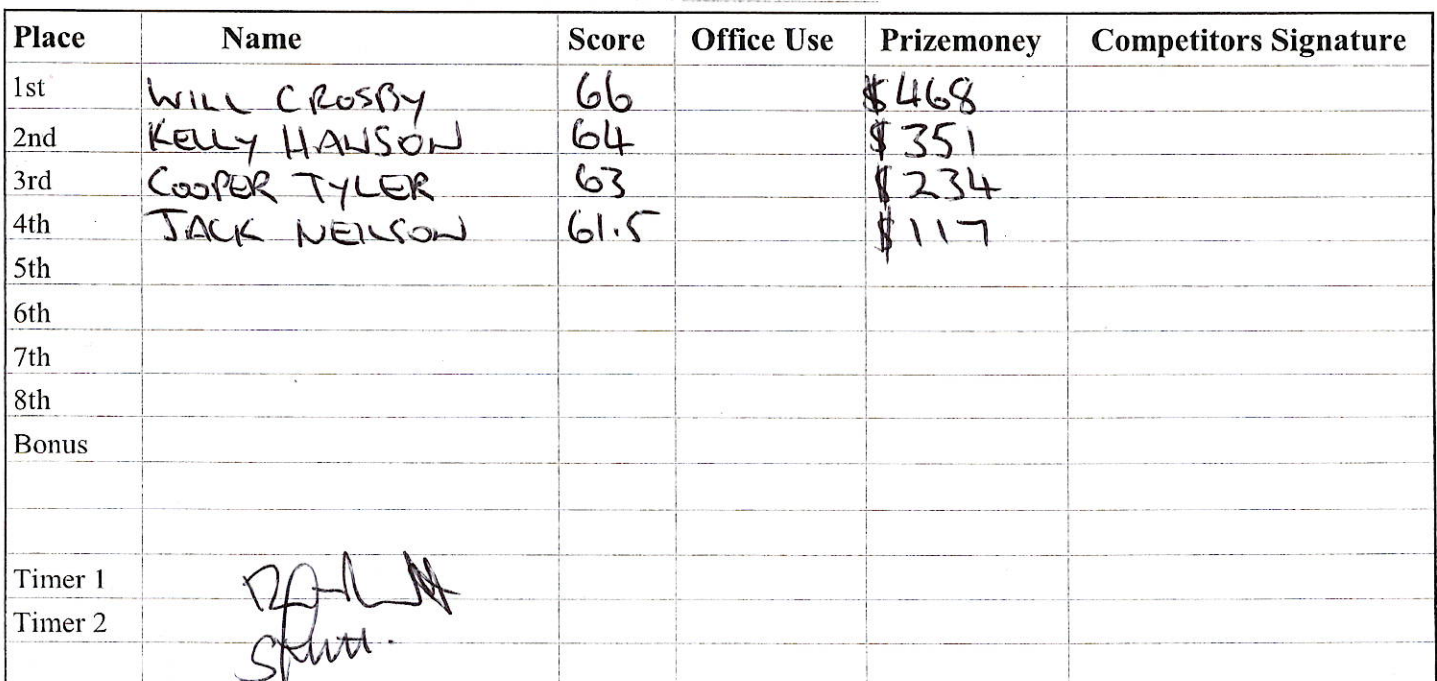 Place Name Score Office Use Prizemoney Competitors Signature
1st WILL CROSBY 66 $468
2nd KELLY HANSON 64 $351
3rd COOPER TYLER 63 $234
4th JACK NEILSON 61.5 $117
5th
6th
7th
8th
Bonus
Timer 1
Timer 2